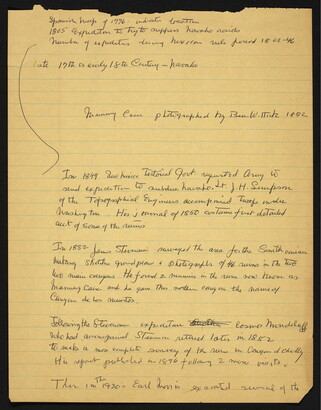 Spanish map of 1776 indicates location
1805 Expedition to try to suppress navaho raids
Number of expeditions during Mexican rule period 1823-46
Late 17th to early 18th Century – navaho
Mummy Cave photographed by Ben Wittick 1882
In 1849 territorial Govt requested Army to
send expedition to subdue navaho. Lt. J. H. Simpson
of the Topographical Engineers accompanied troops under
Washington. His journal of 1850 contains first detailed
acct of some of the ruins
In 1882 James Stevenson surveyed the area for the Smithsonian
making sketches ground plans & photographs of 46 ruins in the two
main canyons. He found 2 mummies in the ruin now known as
Mummy Cave and he gave this the name of
Canyon de los Muertos.
Following the Stevenson expedition Cosmos Mindeleff
who had accompanied Stevenson returned later in 1882
to make a more complete survey of the ruins in Canyon de Chelly
His report published in 1896 following 2 more visits.
Then in the 1920s – Earl Morris excavated several of the